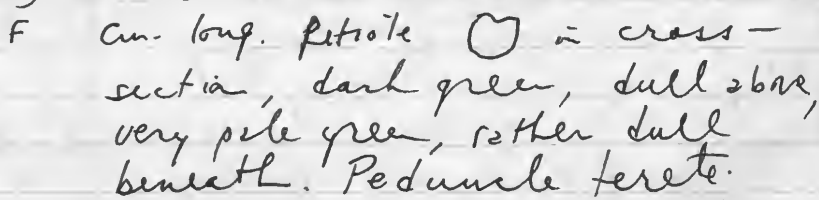 F cm. long. Petiole in cross-
section, dark green, dull above,
very pale green, rather dull
beneath. Peduncle terete.